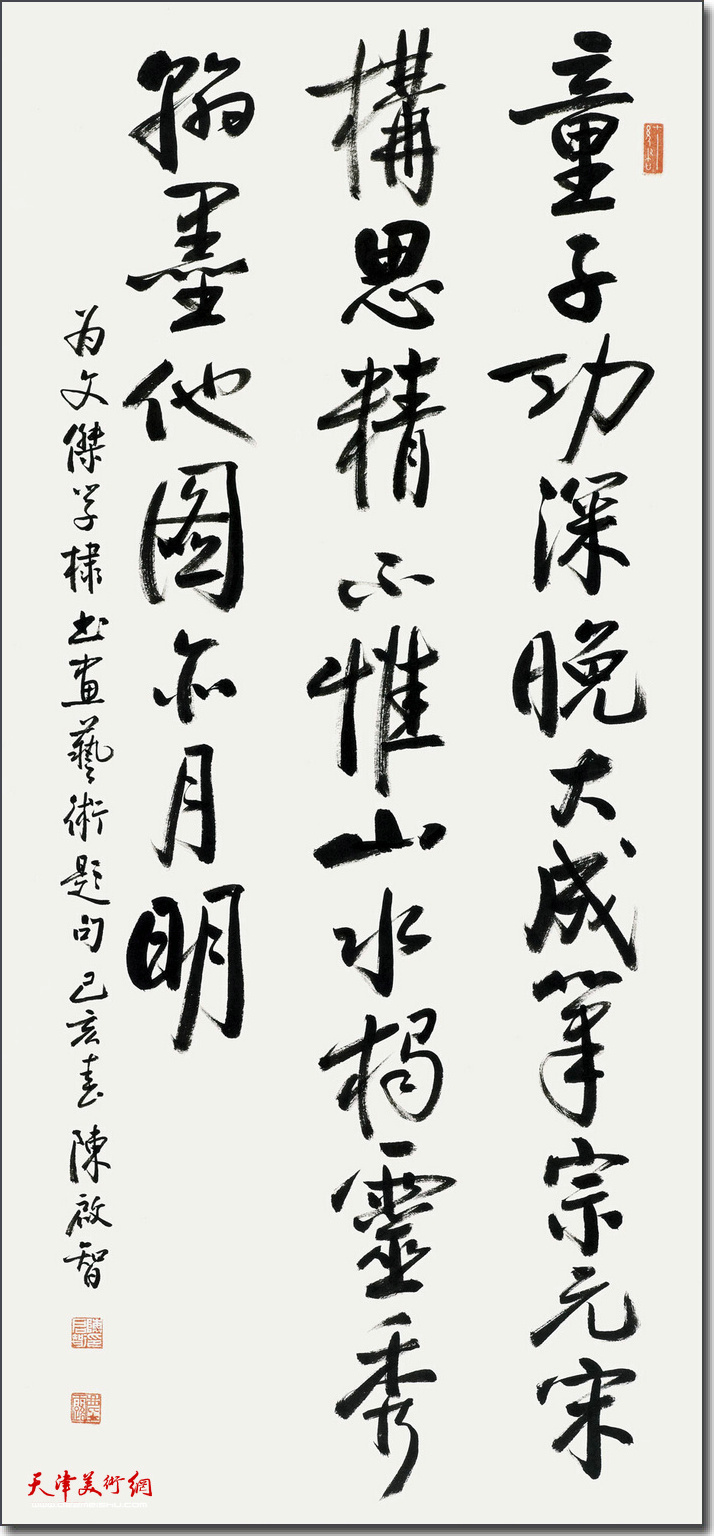 童子功深晚大成筆宗元宋
構思精不惟山水揭靈秀
翰墨他图亦月明
为文傑学棣书画藝術题句己亥春陳啟智
天津美術網